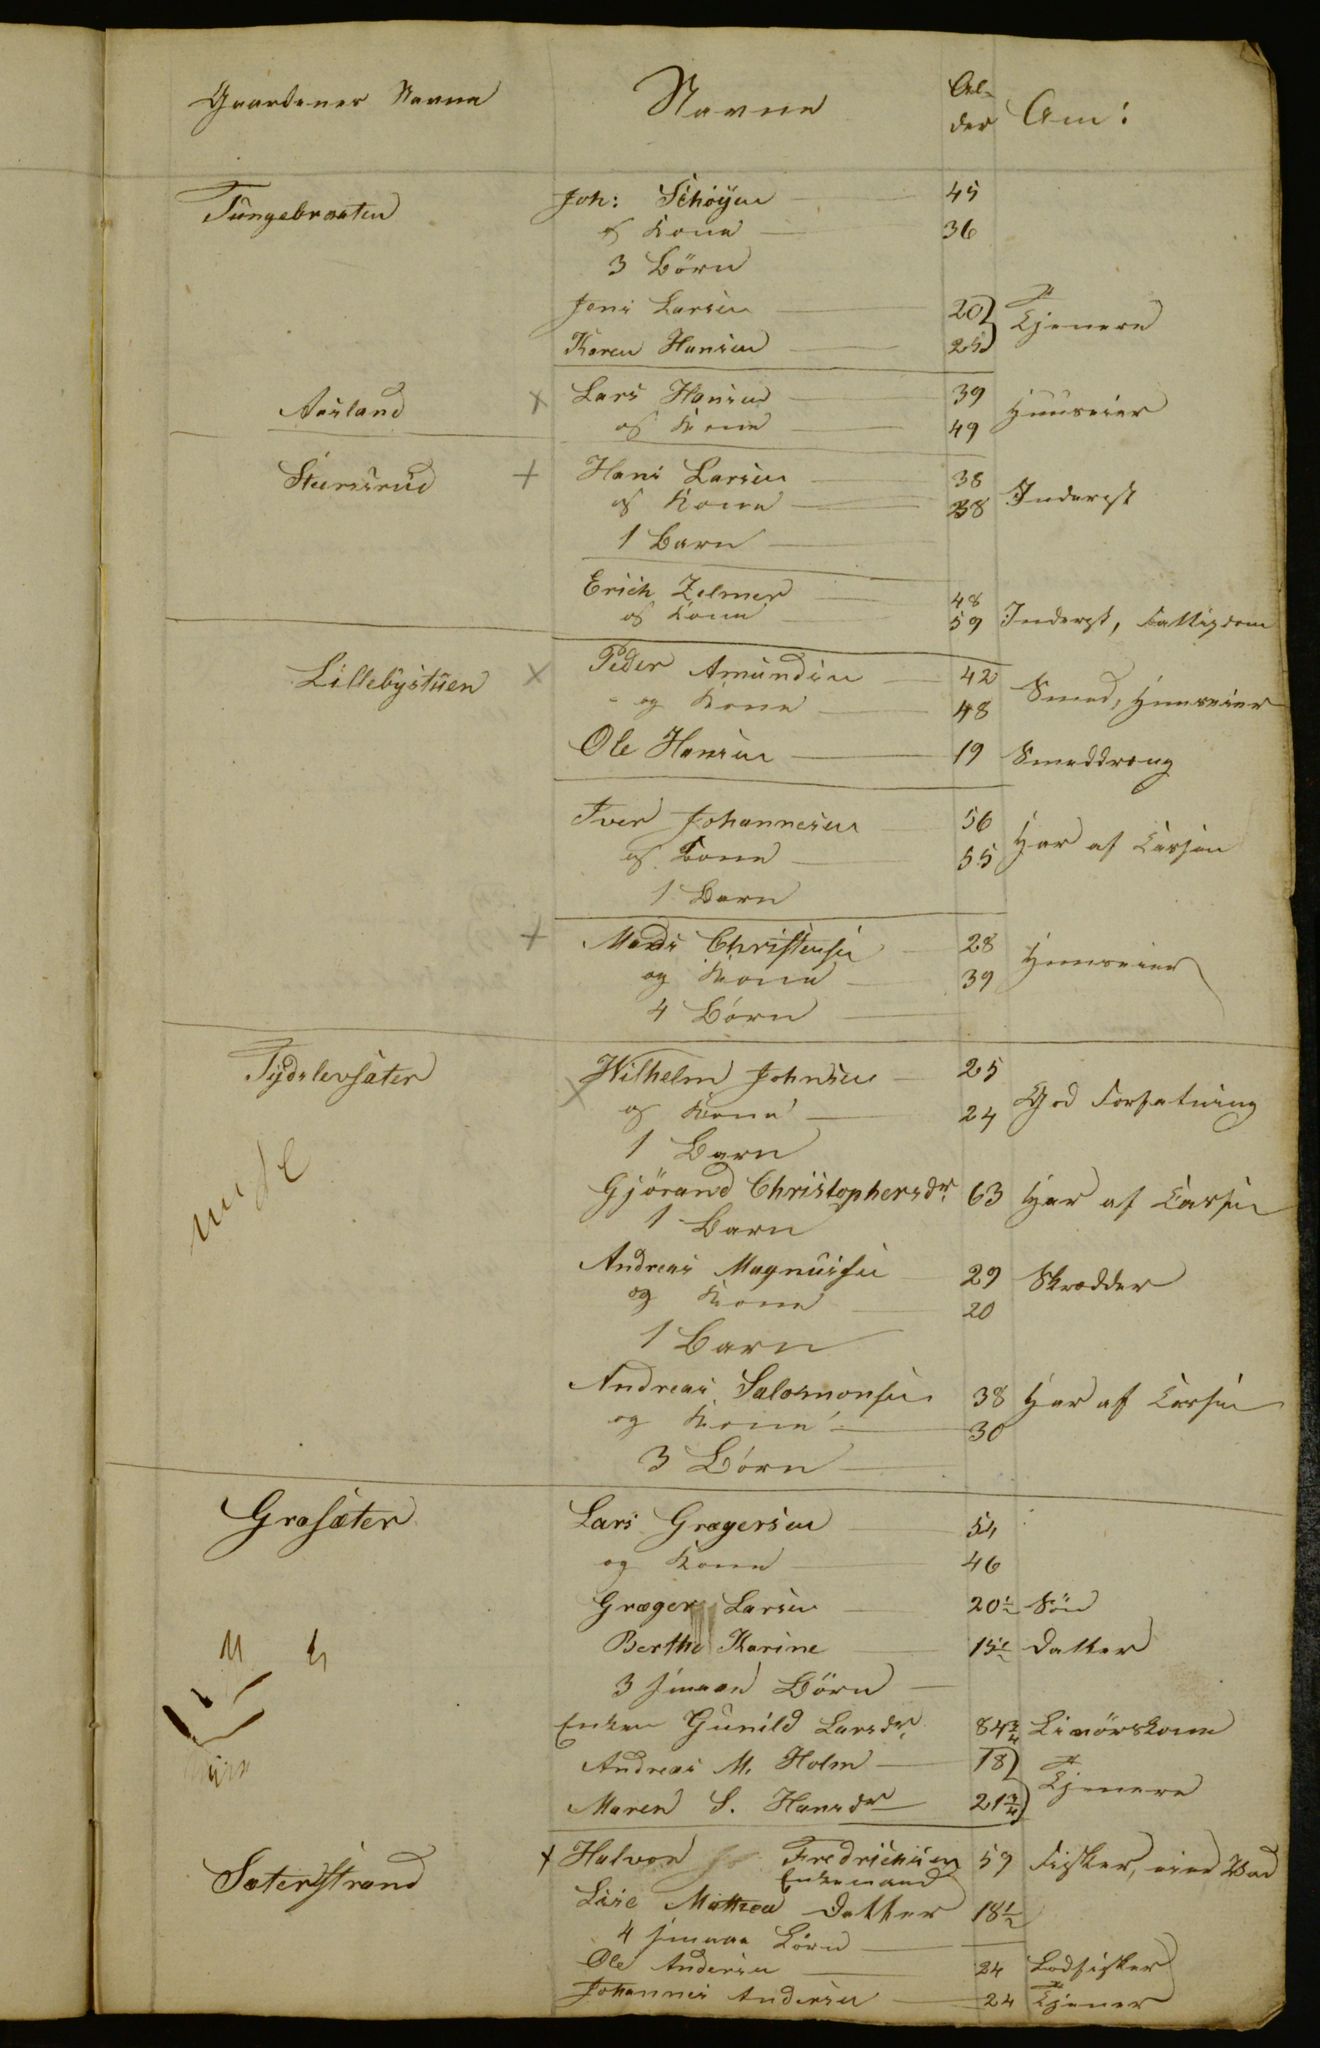 Gaardenes Navne Navne Al-
der Anm:
Tungebraaten Joh: Schöyen 45
og Kone 36
3 Börn
Jens Larsen 20 Tjenere
Karen Hansen 25
Aasland × Lars Hansen 39 Huuseier
og Kone 49
Steensrud + Hans Larsen 38 Inderst
og Kone 38
1 Barn
Erich Zelmer 48
og Kone 59 Inderst, Fattigdom
Lillebystuen × Peder Amundsen 42 Smed, Huuseier
og Kone 48
Ole Hansen 19 Smeddreng
Iver Johannesen 56 Har af Cassen
og Kone 55
1 Barn
+ Mads Christensen 28 Huuseier
og Kone 39
4 Börn
Tydslevsäter × Wilhelm Johnsen 25 God Forfatning
og Kone 24
1 Barn
Gjörand Christophersdr 63 Har af Cassen
1 Barn
Andreas Magnussen 29 Skrædder
og Kone 20
1 Barn
Andreas Salomonsen 38 Har af Cassen
og Kone 30
3 Börn
Grasæter Lars Grægersen 54
og Kone 46
Græger Larsen 20½ Sön
Berthe Karine 15½ Datter
3 smaae Börn
Enken Gunild Larsdr 84¾
Andreas M. Holm 18 Tjenere
Maren S. Hansdr 21¾
Sæterstrand + Halvor Fredrichsen 59 Fisker, eier Vad
Enkemand
Lise Mathea Datter 18½
4 smaae Börn
Ole Andersen 24 Lodsfisker
Johannes Andersen 24 Tjener